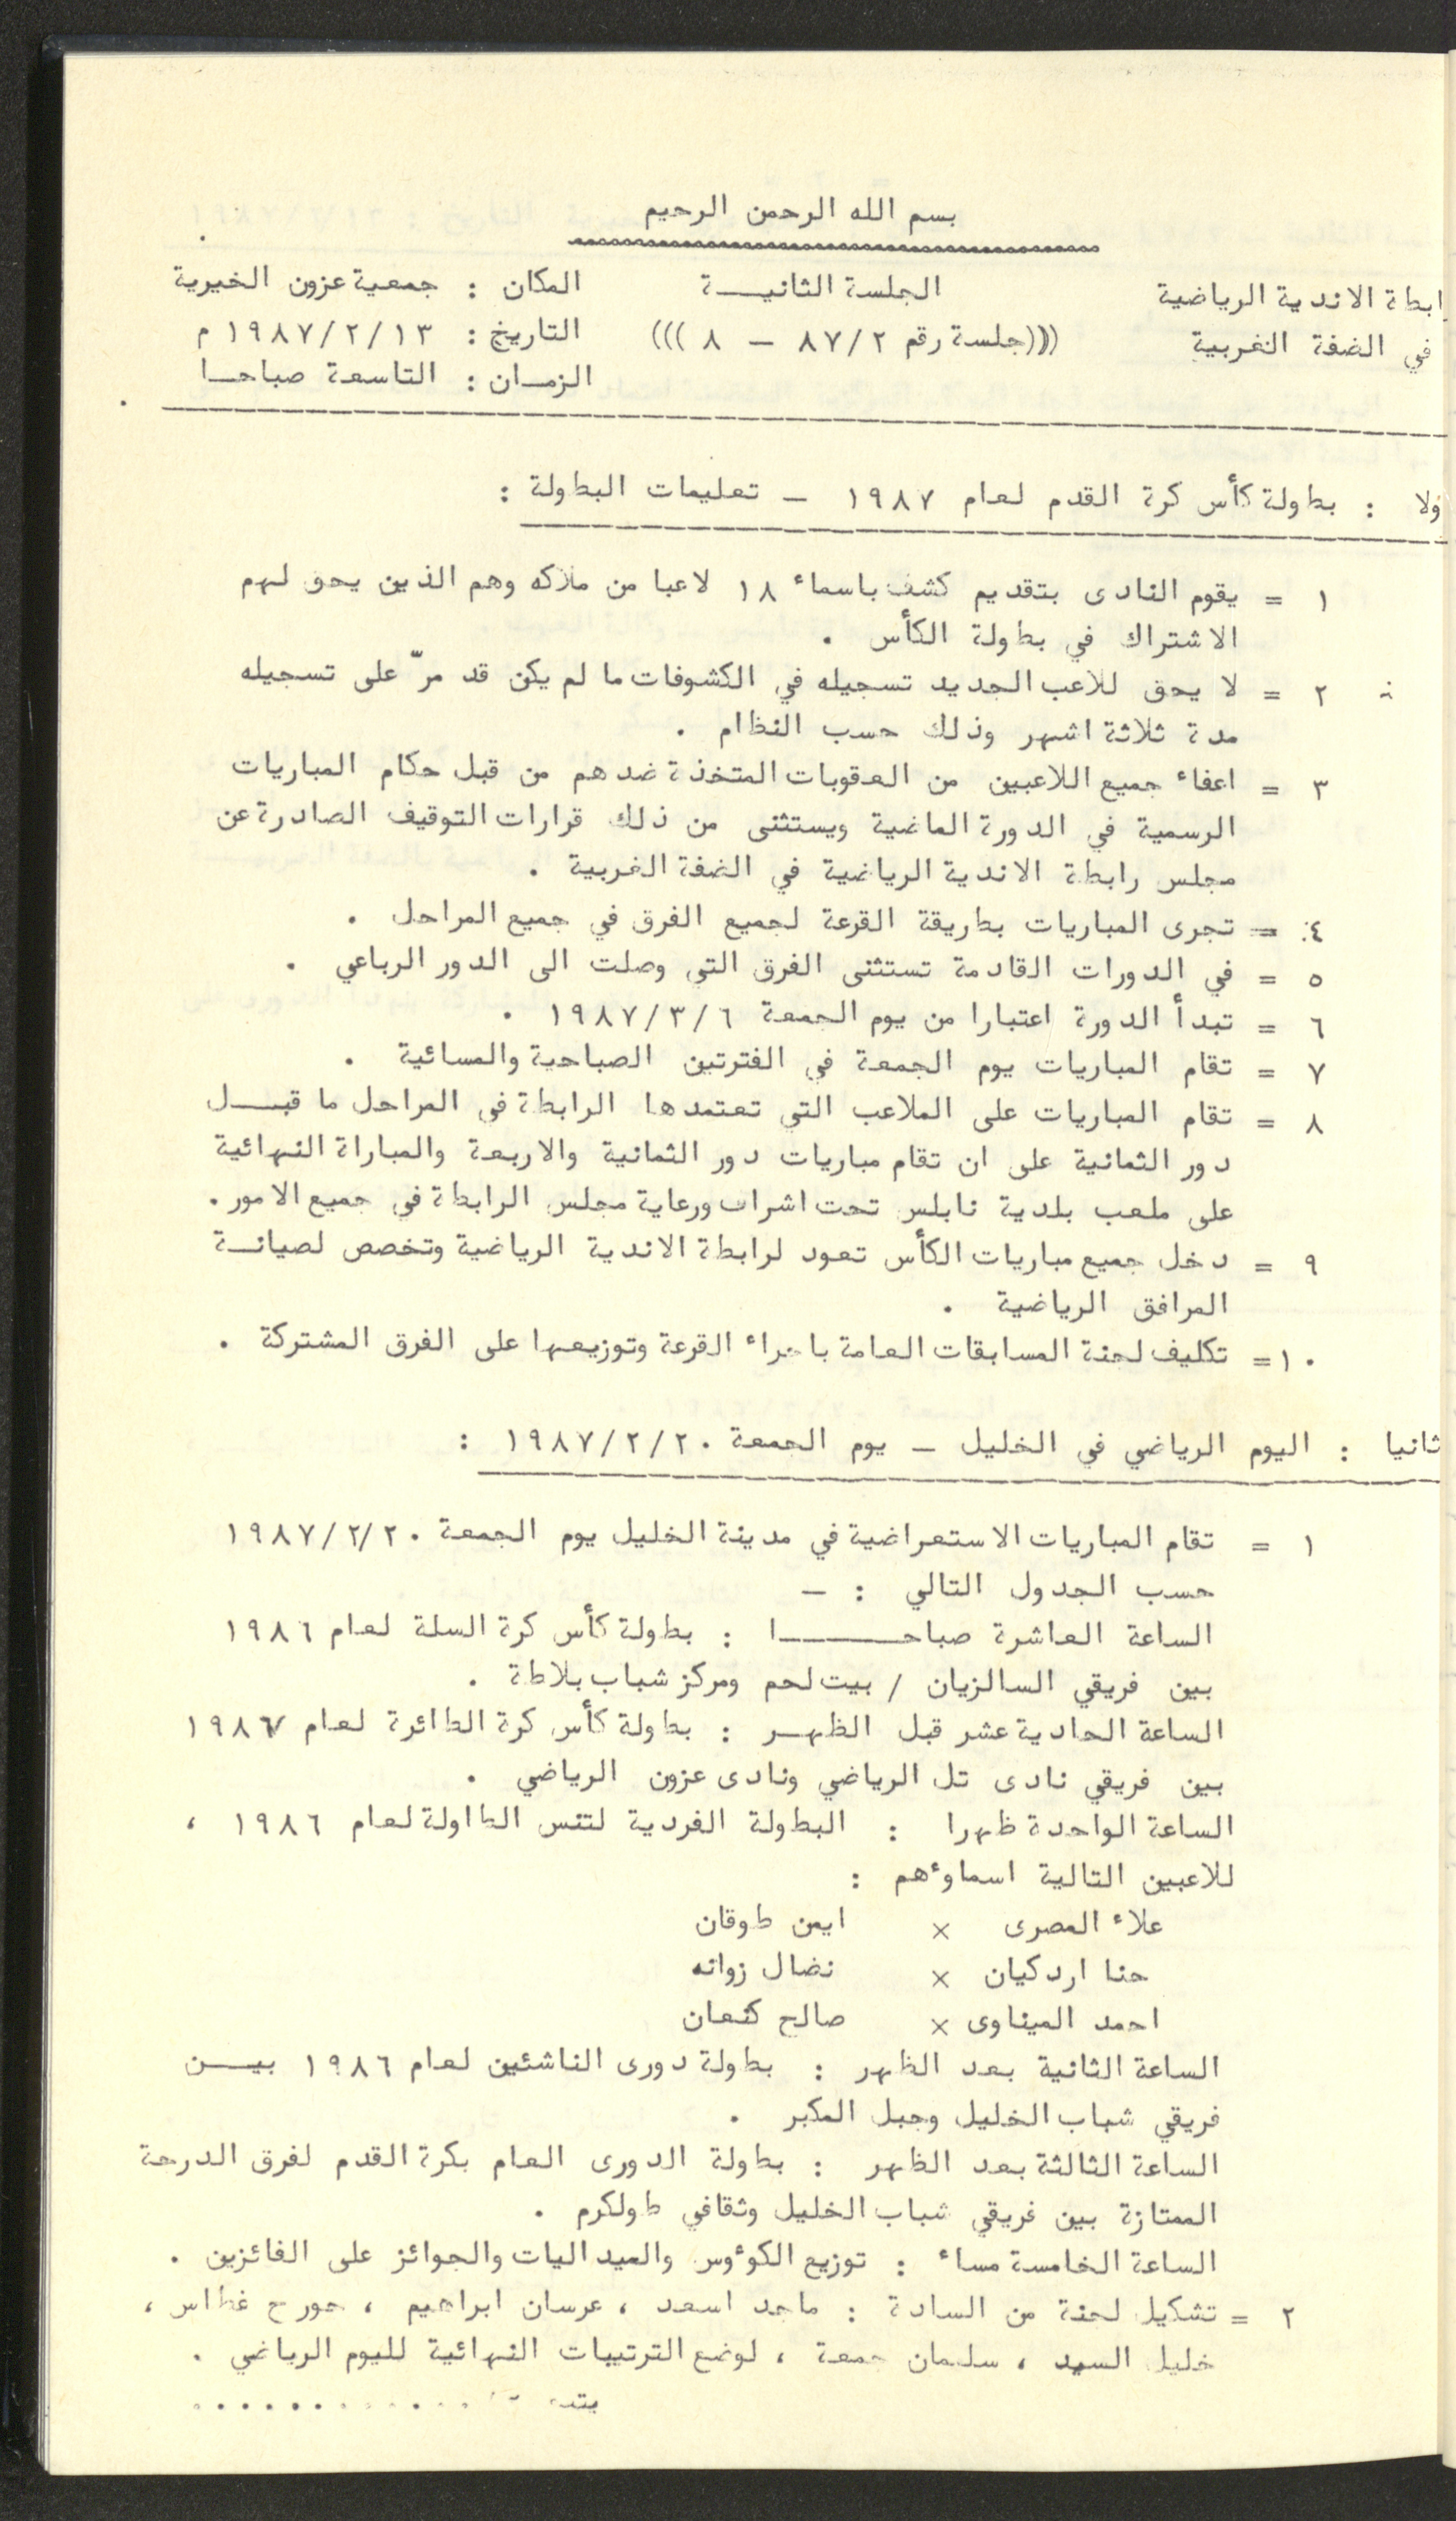 بسم الله الرحمن الرحيم
ابطة الاندية الرياضية الجلسة الثانيـــة المكان : جمعية عزون الخيرية
في الضفة الغربية (((جلسة رقم ٨٧/٢ – ٨ ))) التاريخ : ١٩٨٧/٢/١٣ م
الزمـان : التاسعة صباحـا
ولا : بطولة كأس كرة القدم لعام ١٩٨٧ – تعليمات البطولة :
١ = يقوم النادى بتقديم كشف باسماء ١٨ لاعبا من ملاكه وهم الذين يحق لهم
الاشتراك في بطولة الكأس .
٢ = لا يحق للاعب الجديد تسجيله في الكشوفات ما لم يكن قد مرّ على تسجيله
مدة ثلاثة اشهر وذلك حسب النظام .
٣ = اعفاء جميع اللاعبين من العقوبات المتخذة ضدهم من قبل حكام المباريات
الرسمية في الدورة الماضية ويستثنى من ذلك قرارات التوقيف الصادرة عن
مجلس رابطة الاندية الرياضية في الضفة الغربية .
٤ = تجرى المباريات بطريقة القرعة لجميع الفرق في جميع المراحل .
٥ = في الدورات القادمة تستثنى الفرق التي وصلت الى الدور الرباعي .
٦ = تبدأ الدورة اعتبارا من يوم الجمعة ١٩٨٧/٣/٦ .
٧ = تقام المباريات يوم الجمعة في الفترتين الصباحية والمسائية .
٨ = تقام المباريات على الملاعب التي تعتمدها الرابطة في المراحل ما قبـــل
دور الثمانية على ان تقام مباريات دور الثمانية والاربعة والمباراة النهائية
على ملعب بلدية نابلس تحت اشراف ورعاية مجلس الرابطة في جميع الامور .
٩ = دخل جميع مباريات الكأس تعود لرابطة الاندية الرياضية وتخصص لصيانـة
المرافق الرياضية .
١٠ = تكليف لجنة المسابقات العامة باجراء القرعة وتوزيعها على الفرق المشتركة .
ثانيا : اليوم الرياضي في الخليل – يوم الجمعة ١٩٨٧/٢/٢٠ :
١ = تقام المباريات الاستعراضية في مدينة الخليل يوم الجمعة ١٩٨٧/٢/٢٠
حسب الجدول التالي : –
الساعة العاشرة صباحـــــــا : بطولة كأس كرة السلة لعام ١٩٨٦
بين فريقي السالزيان / بيت لحم ومركز شباب بلاطة .
الساعة الحادية عشر قبل الظهـر : بطولة كأس كرة الطائرة لعام ١٩٨٦
بين فريقي نادى تل الرياضي ونادى عزون الرياضي .
الساعة الواحدة ظهرا : البطولة الفردية لتنس الطاولة لعام ١٩٨٦ ،
للاعبين التالية اسماوءهم :
علاء المصرى × ايمن طوقان
حنا اردكيان × نضال زوانه
احمد الميناوى × صالح كنعان
الساعة الثانية بعد الظهر : بطولة دورى الناشئين لعام ١٩٨٦ بيـــن
فريقي شباب الخليل وجبل المكبر .
الساعة الثالثة بعد الظهر : بطولة الدورى العام بكرة القدم لفرق الدرجة
الممتازة بين فريقي شباب الخليل وثقافي طولكرم .
الساعة الخامسة مساء : توزيع الكوءوس والميداليات والجوائز على الفائزين .
٢ = تشكيل لجنة من السادة : ماجد اسعد ، عرسان ابراهيم ، جورج غطاس ،
خليل السيد ، سلمان جمعة ، لوضع الترتيبات النهائية لليوم الرياضي .